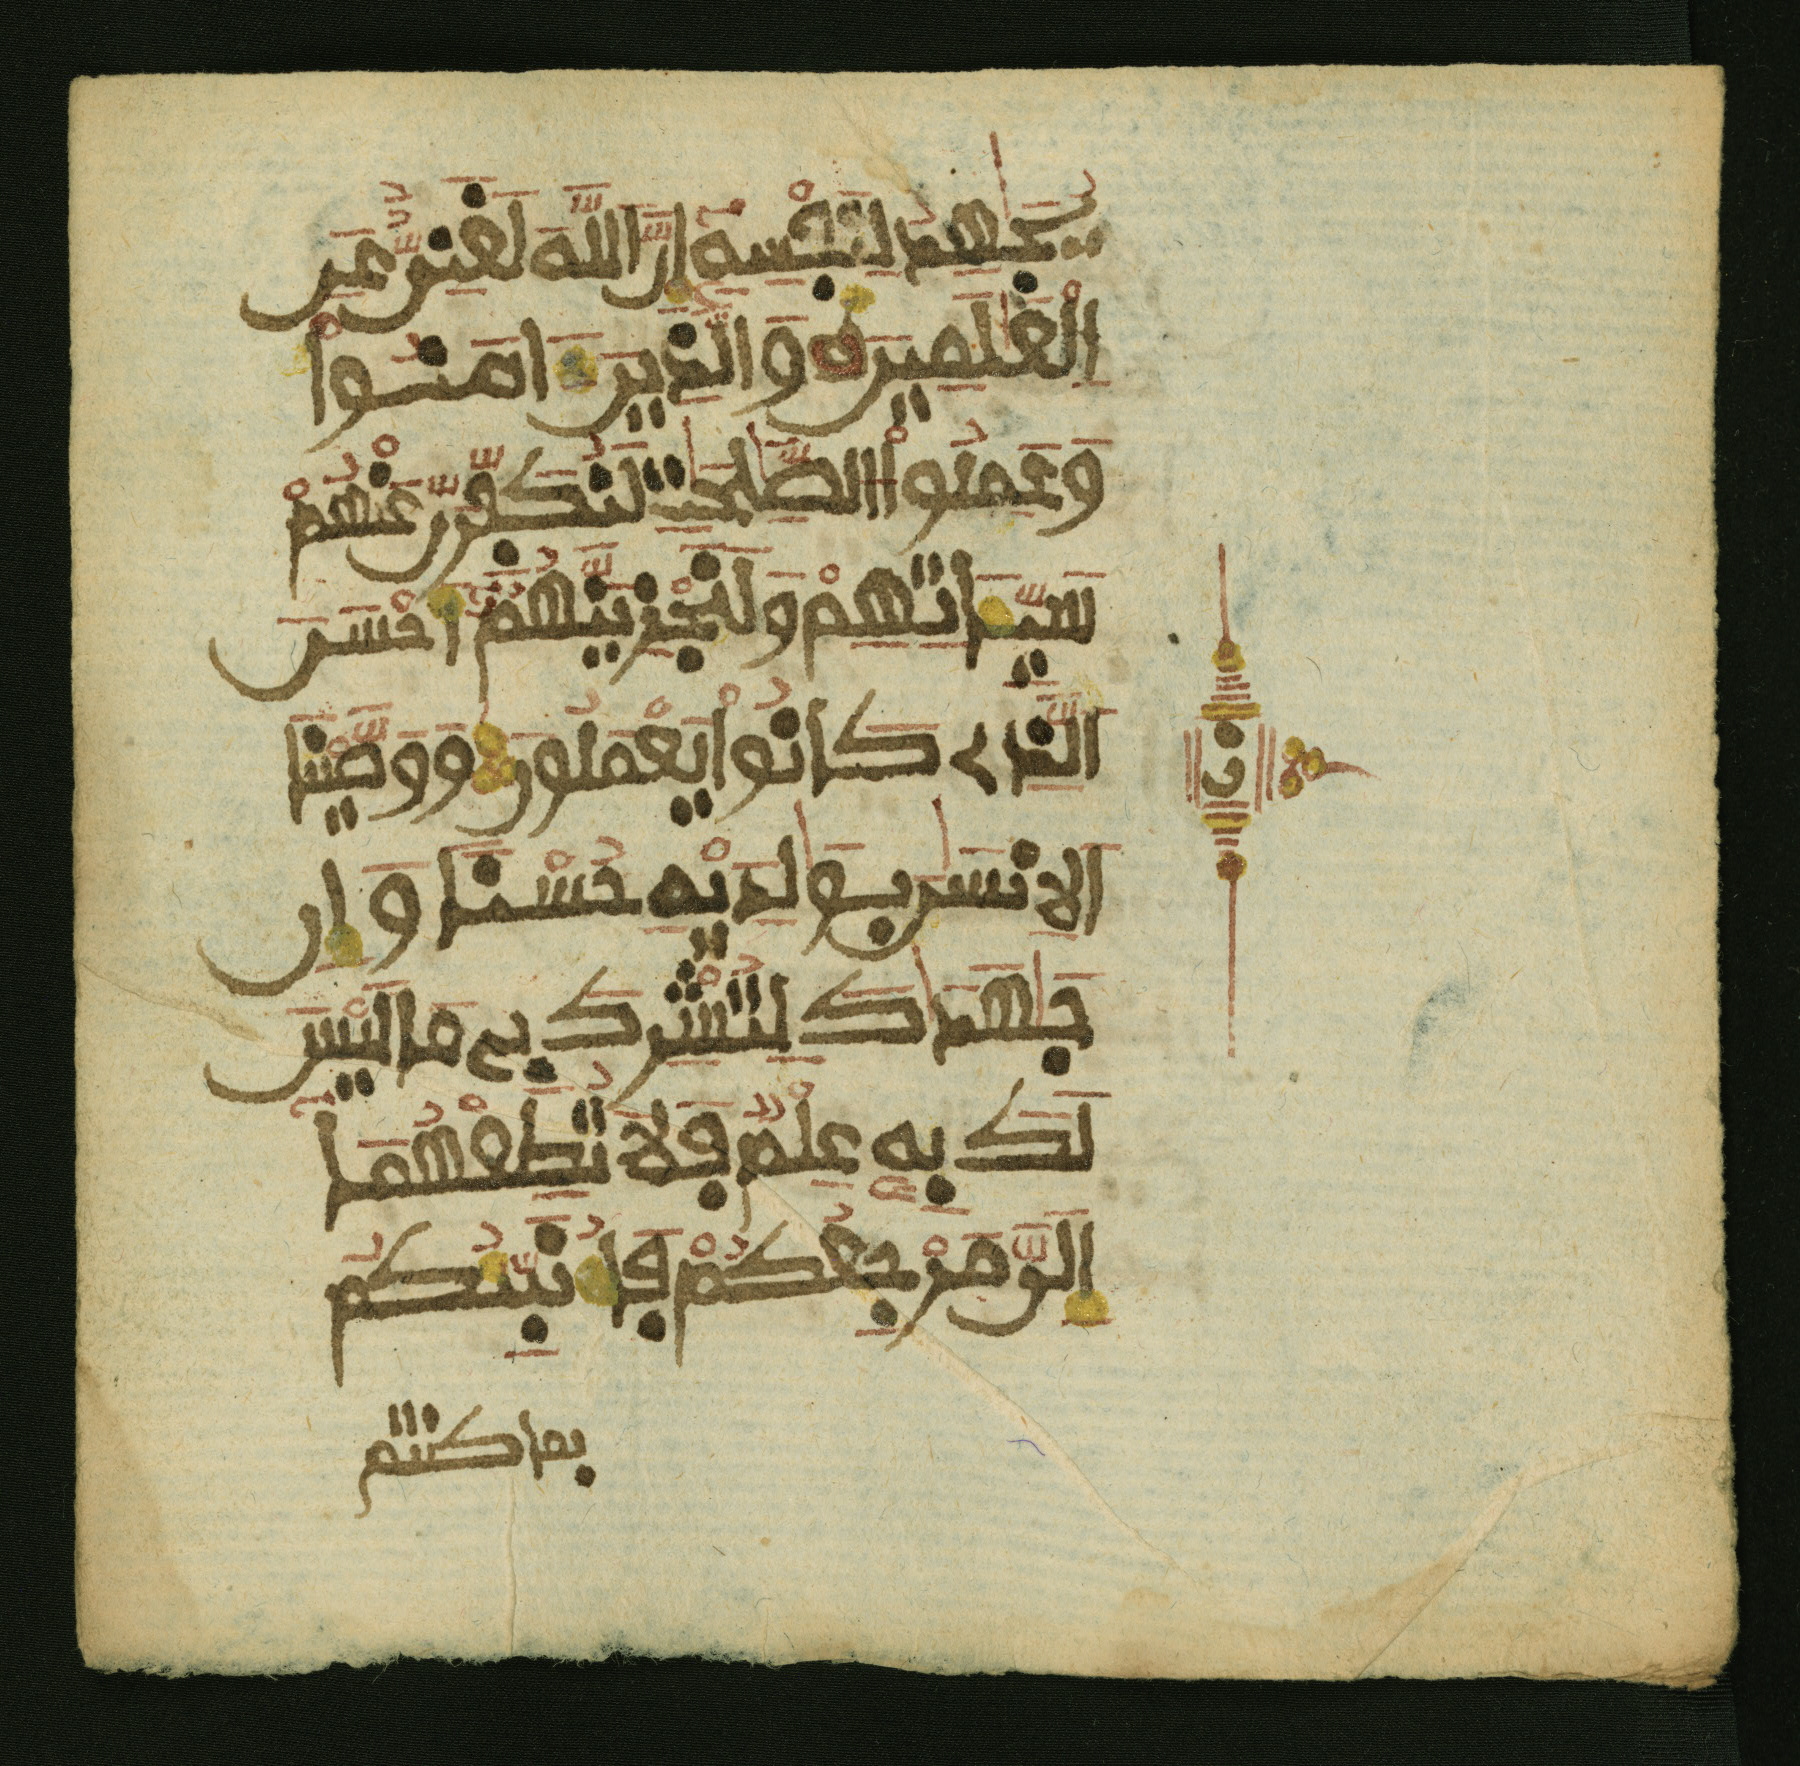 يجهد لنفسه إن الله لغني عن
العلمين والذين ءامنوا
وعملوا الصلحت لنكفرن عنهم
سيـاتهم ولنجزينهم أحسن
الذي كانوا يعملون ووصينا
الانسن بولديه حسنا وإن
جهداك لتشرك بي ما ليس
لك به علم فلا تطعهما
إلي مرجعكم فأنبئكم
بما كنتم
ن